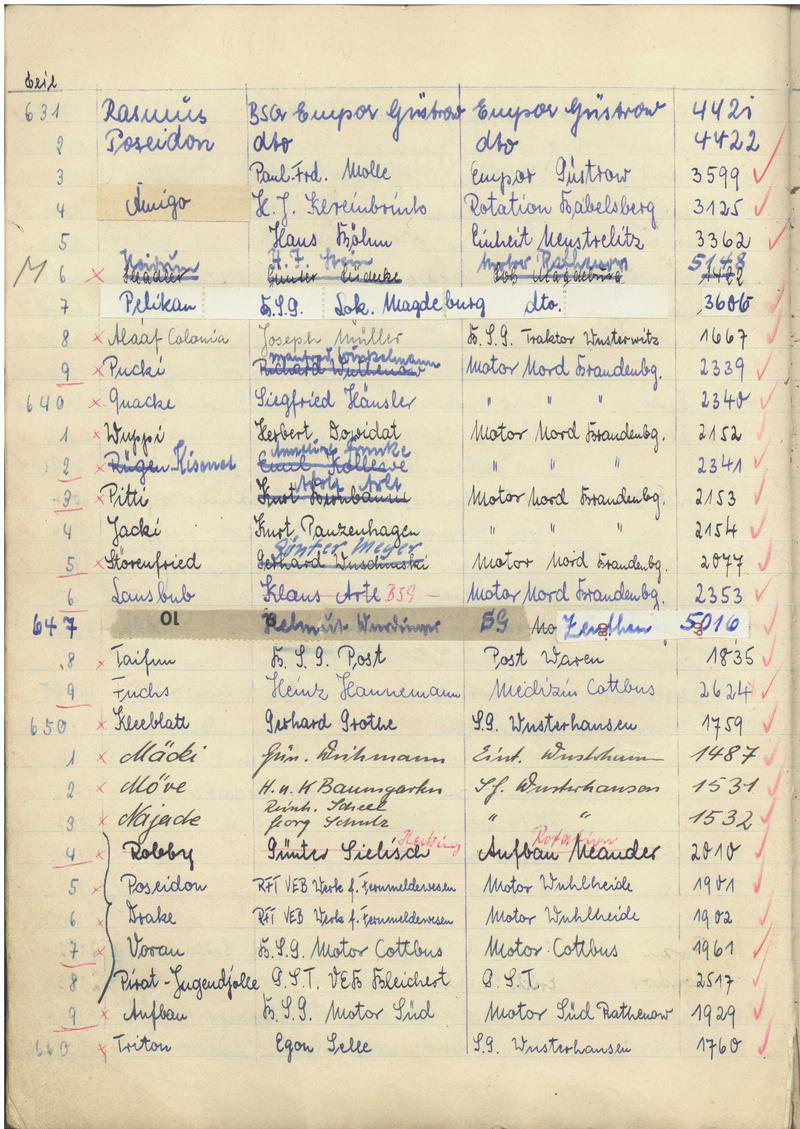 631 Rasmus BSG Empor Güstrow Empor Güstrow 4421
2 Poseidon dto dto 4422
3 Paul-Frd. Molle Empor Güstrow 3599
4 Amigo H. J. Rotation Babelsberg 3125
5 Hans Böhm Einheit Neustrelitz 3362
H. J. Motor Rathenow 5148
M 6 Günter Lüdecke Magdeburg
7 Pelikan B.S.G. Lok. Magdeburg dto. 3606
8 Alaaf Colonia Joseph Müller B.S.G. Traktor Wusterwitz 1667
Manfred
9 Pucki Richard Motor Nord Brandenbg. 2339
640 Quacke Siegfried Hänsler " " " 2340
1 Wuppi Herbert Dowidat Motor Nord Brandenbg. 2152
2 Rügen Kismet Emil " " " 2341
Adolf Arlt
3 Pitti Kurt Birnbaum Motor Nord Brandenbg. 2153
4 Jacki Kurt Panzenhagen " " " 2154
Günter Meyer
5 Störenfried Gerhard Motor Nord Brandenbg. 2077
6 Lausbub Klaus Arte BSG – Motor Nord Brandenbg. 2353
647 Ol Helmut SG Mo Zeuthen 5016
8 Taifun B.S.G. Post Post Waren 1835
9 Fuchs Heinz Hannemann Medizin Cottbus 2624
650 Kleeblatt Gerhard Grothe S.G. Wusterhausen 1759
1 Mäcki Gün. Wichmann Eint. 1487
2 Möve H. u. K Baumgarten S.G. Wusterhausen 1531
Reinh. Scheel
3 Najade Georg Schulz " " 1532
Rotation
4 Robby Günter Aufbau Meander 2010
5 Poseidon RFT VEB Werk f. Fernmeldewesen Motor Wuhlheide 1901
6 Drake RFT VEB Werk f. Fernmeldewesen Motor Wuhlheide 1902
7 Voran B.S.G. Motor Cottbus Motor Cottbus 1961
8 Pirat-Jugendjolle G.S.T. VEB Bleichert G.S.T. 2517
9 Aufbau B.S.G. Motor Süd Motor Süd Rathenow 1929
660 Triton Egon Selle S.G. Wusterhausen 1760